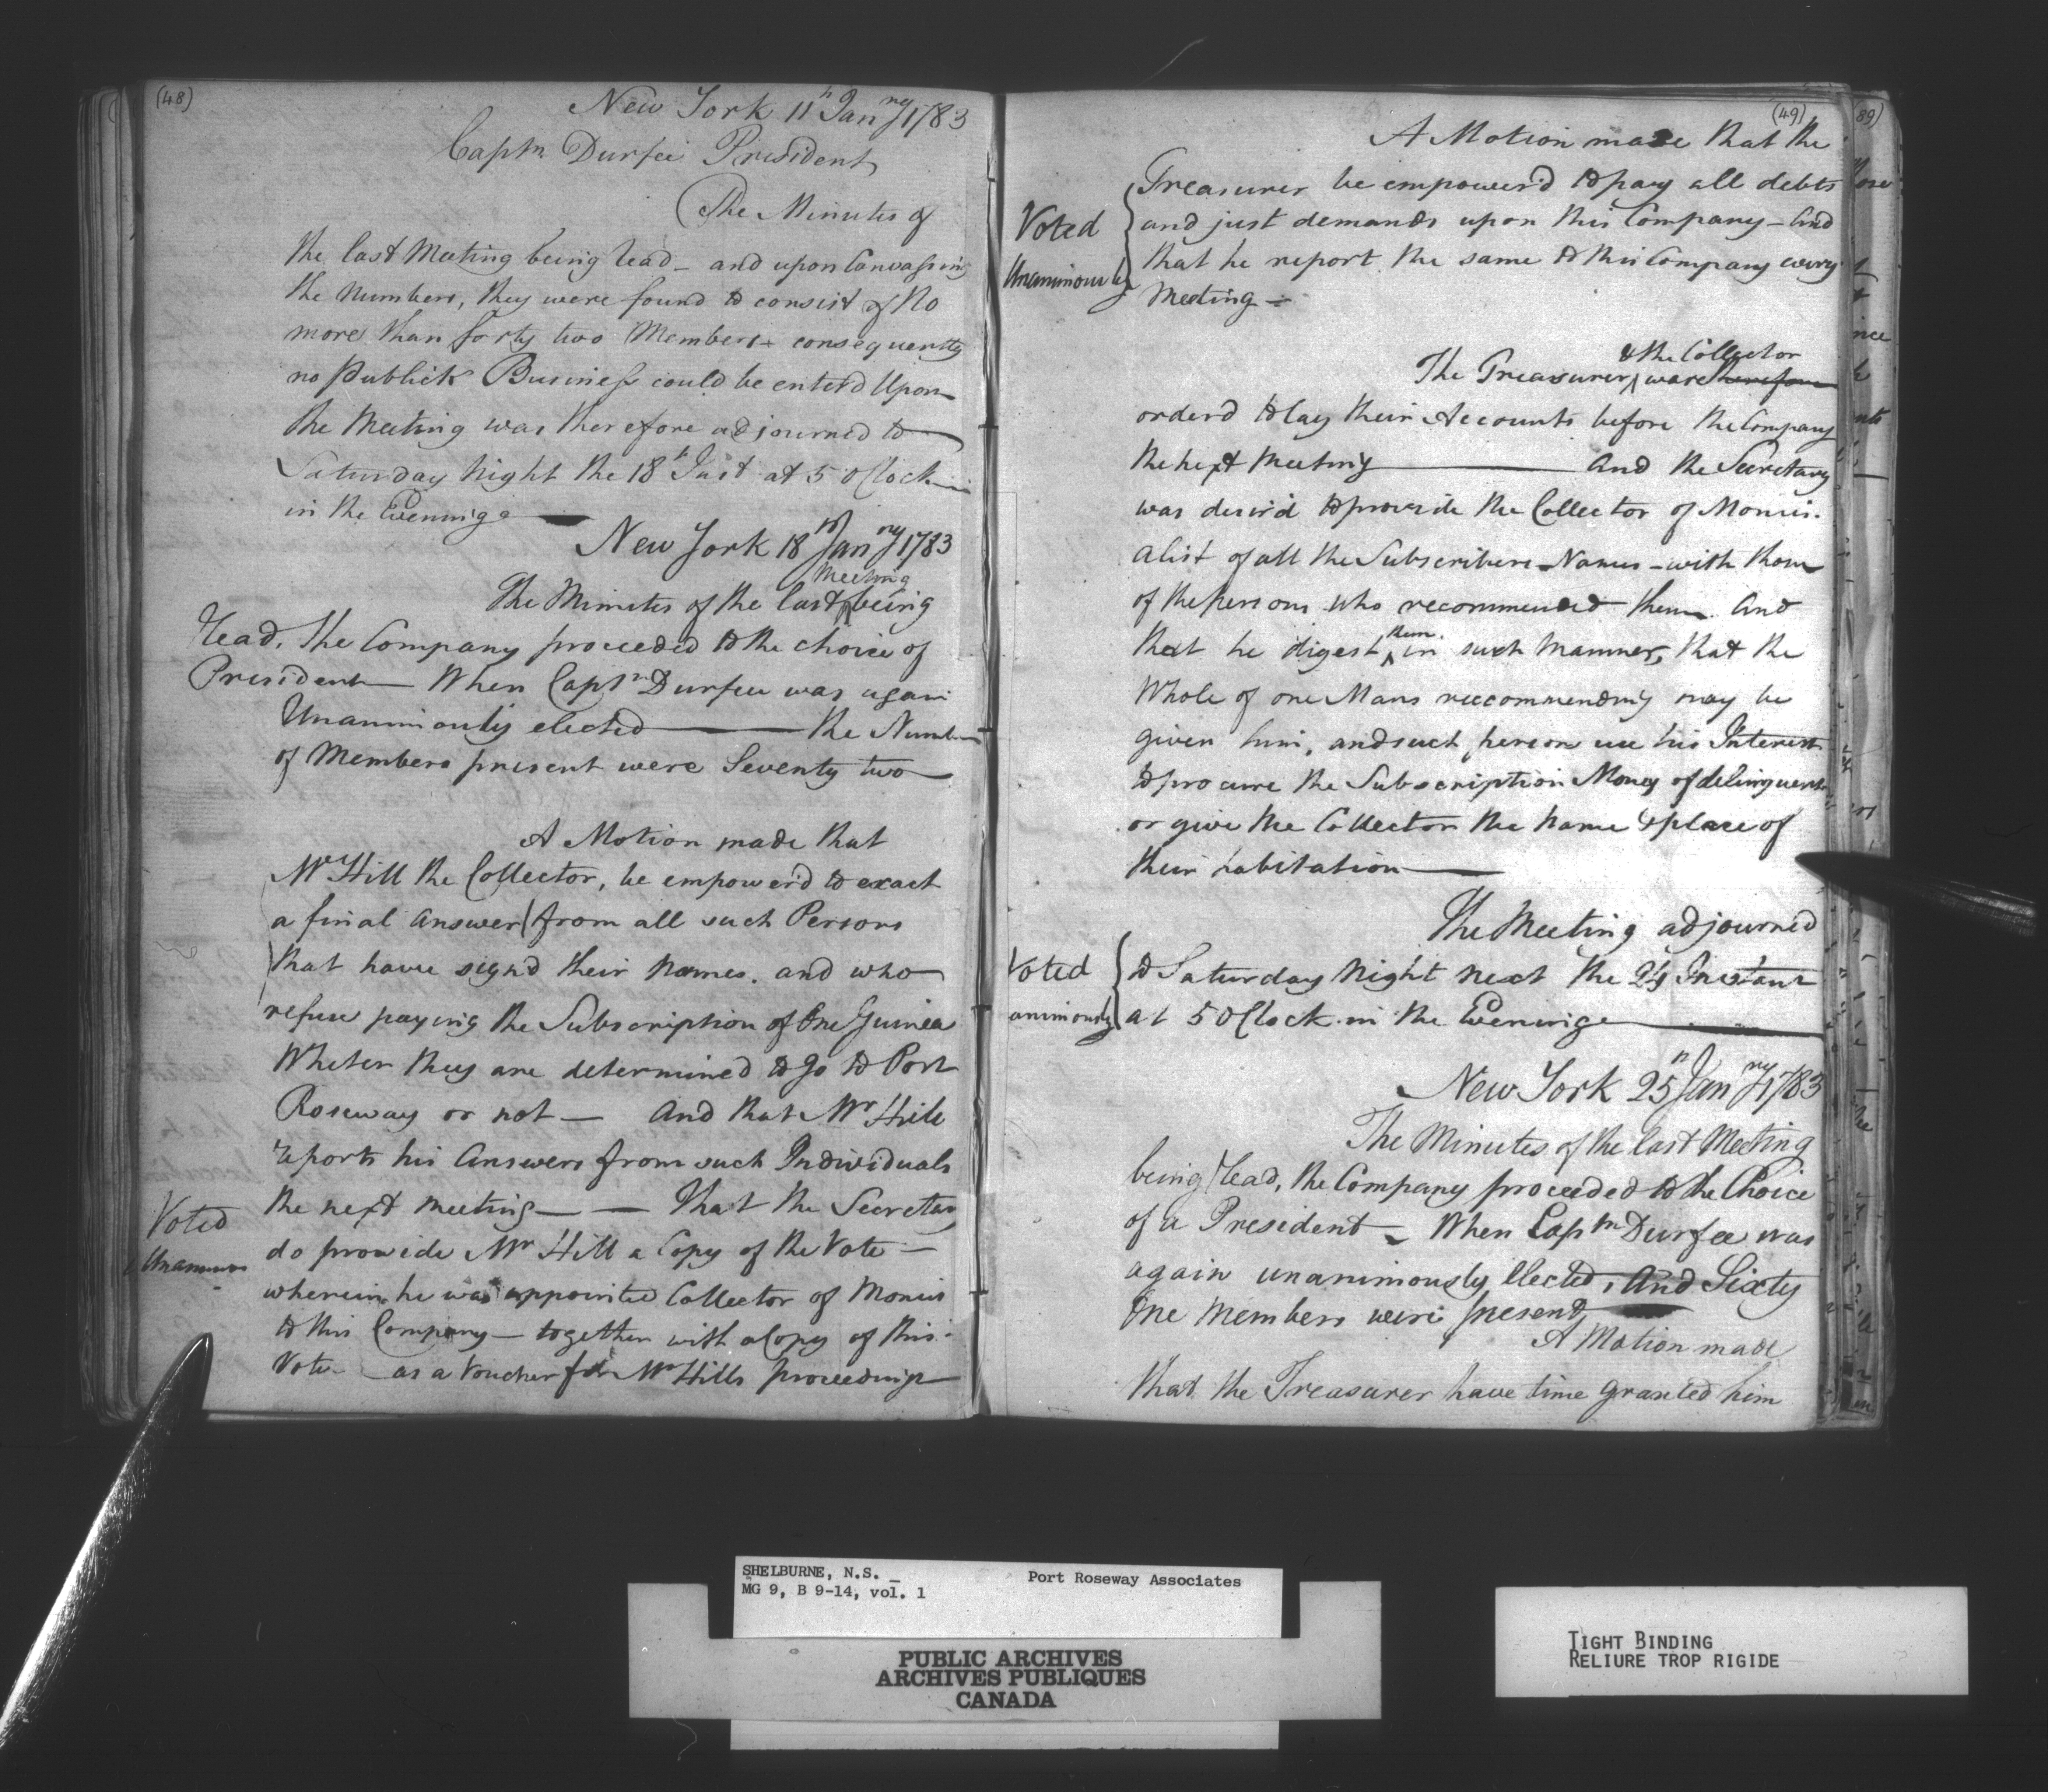 (48)
New York 11th Janry 1783
Captn Durfee President
The Minutes of
the last Meeting being read - and upon Canvassing
the Numbers, they were found to consist of No
more than forty two Members - consequently
no Publick Business could be enterd Upon
the Meeting was therefore adjourned to
Saturday Night the 18th Inst at 5 OClock
in the Evening
New York 18th Janry 1783
Meeting
The Minutes of the last ^ being
read, the Company proceeded to the choice of
President - When Captn Durfee was again
Unanimously elected — the Number
of Members present were Seventy two
A Motion made that
Mr Hill the Collector, be empowerd to exact
a final answer from all such Persons
that have signd their Names. and who
refuse paying the Subscription of One Guinea
Wheter they are determined to go to Port
Roseway or not — And that Mr Hill
reports his Answers from such Individuals
the next meeting — — That the Secretary
Voted
do provide Mr Hill a Copy of the Vote -
Unanimous
wherein he was appointed Collector of Monies
to this Company - together with a Copy of this
Vote - as a Voucher for Mr Hills proceedings
(49)
(89)
A Motion made that the
Treasurer be empowerd to pay all debts
Voted
and just demands upon this Company - and
Unanimously
that he report the same to this Company every
Meeting -
& the Collector
The Treasurer ^ ware therefore
orderd to lay their Accounts before the Company
the next Meeting — And the Secretary
was desird to provide the Collector of Monies.
a list of all the Subscribers Names - with those
of the persons who recommended them. And
them
that he digest ^ in such manner, that the
Whole of one Mans reccommending may be
given him, and such person use his Interest
to procure the Subscription Money of delinquents
or give the Collector the name & place of
their habitation —
The Meeting adjourned
Voted
to Saturday Night next the 24 Instant
animously
at 5 OClock in the Evening
New York 25th Janry 1783
The Minutes of the last Meeting
being read, the Company proceeded to the Choice
of a President - When Captn Durfee was
again unanimously Elected, And Sixty
One Members were present
A Motion made
that the Treasurer have time granted him
SHELBURNE, N.S. _
Port Roseway Associates
MG 9, B 9-14, vol. 1
PUBLIC ARCHIVES
ARCHIVES PUBLIQUES
CANADA
TIGHT BINDING
RELIURE TROP RIGIDE